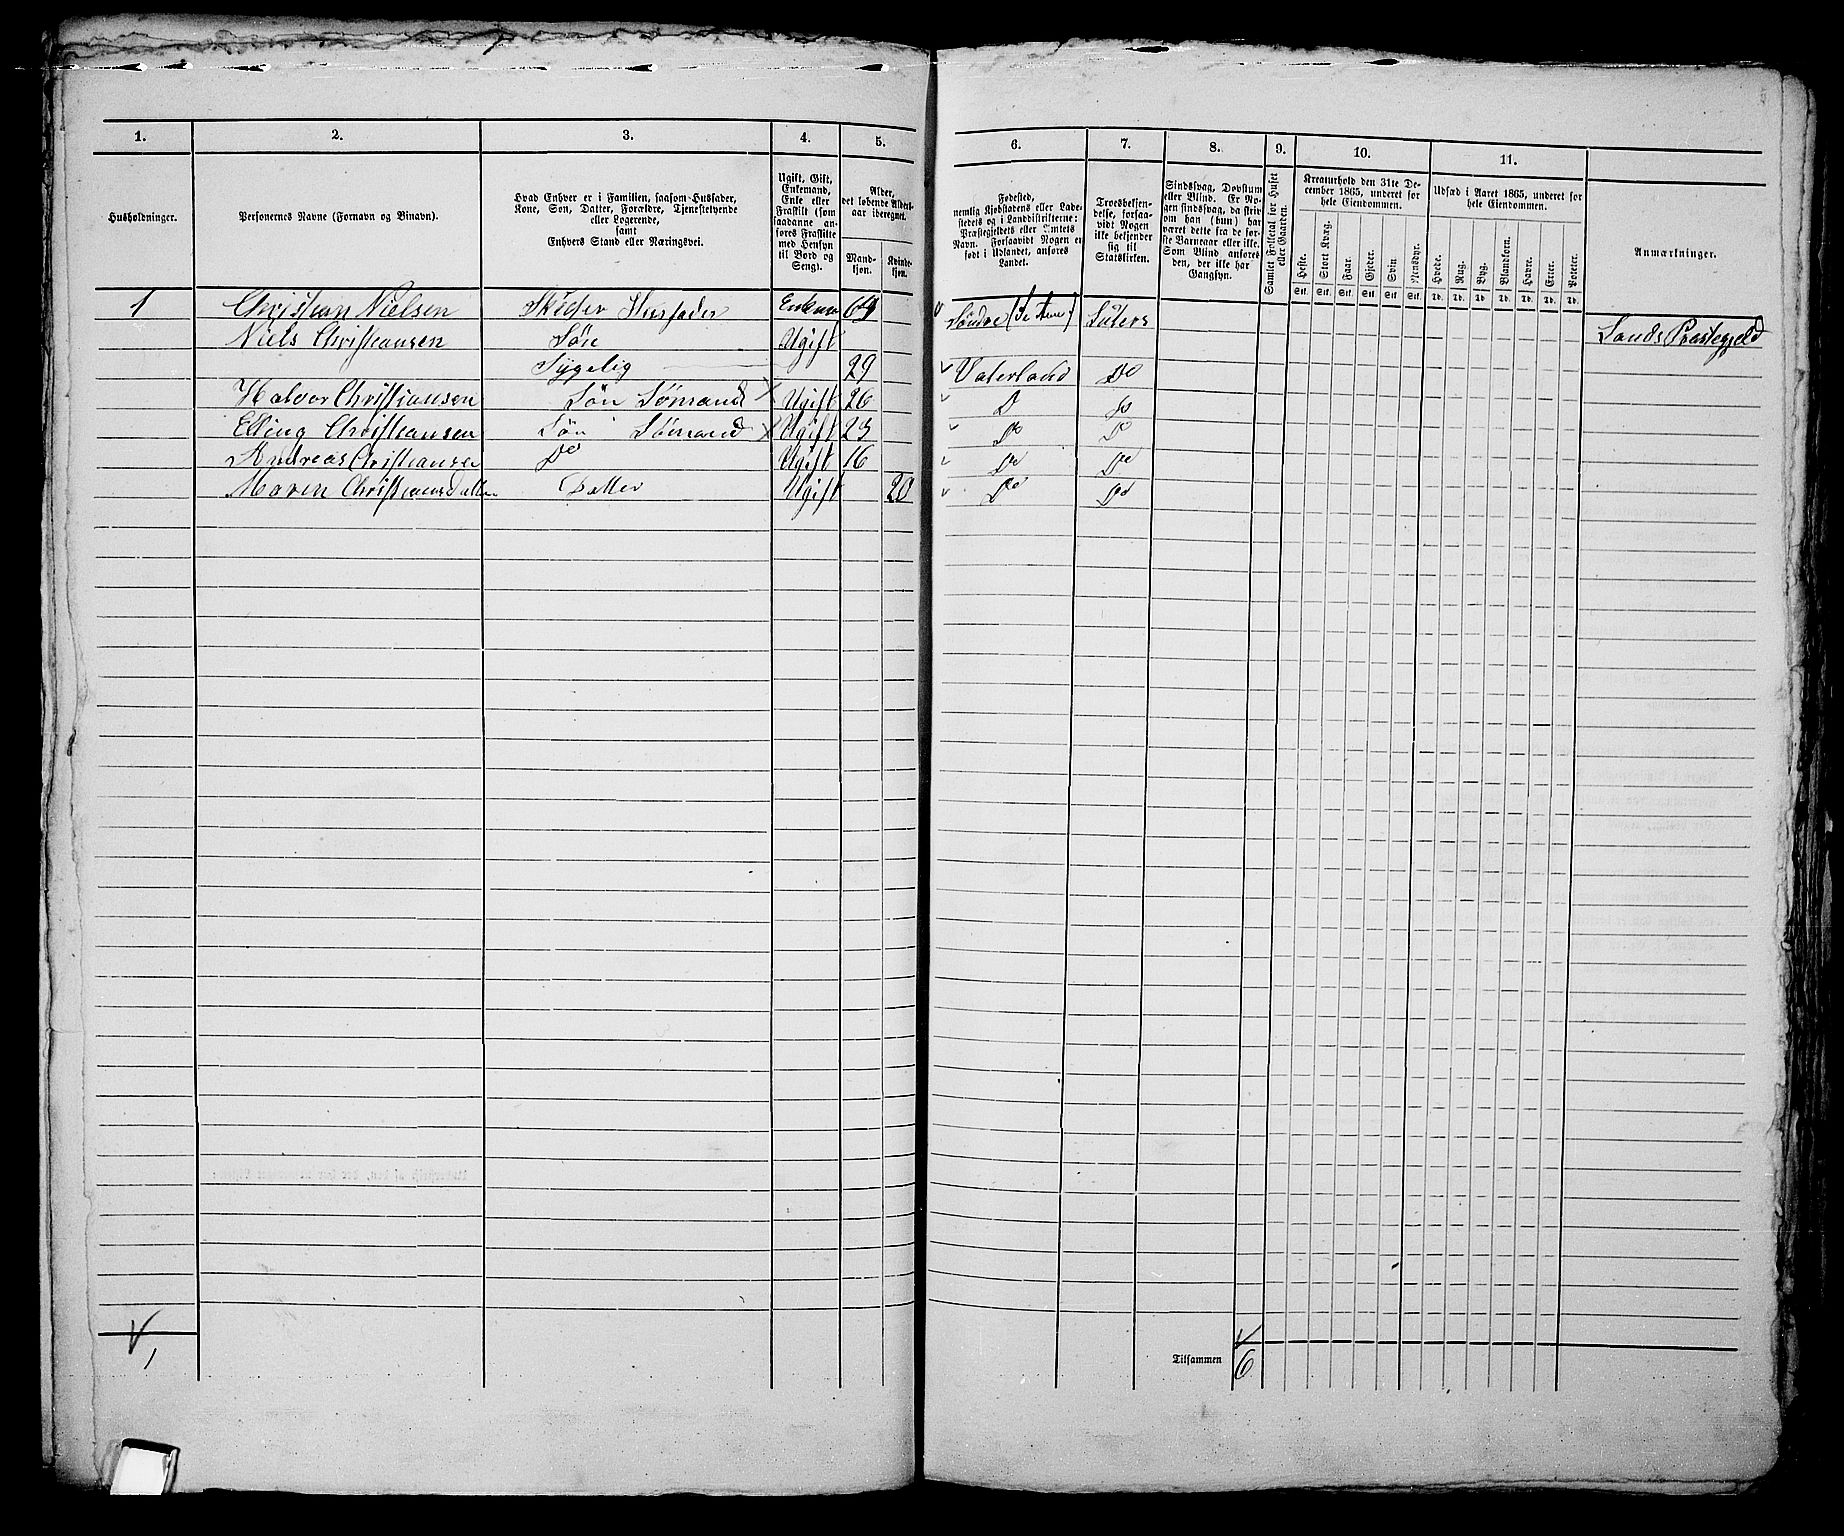 1. 2. 3. 4. 5. 6. 7. 8. 9. 10. 11.
Husholdninger.
Personernes Navne (Fornavn og Binavn).
Hvad Enhver er i Familien, saasom Husfader,
Kone, Søn, Datter, Forældre, Tjenestetyende
eller Logerende,
samt
Enhvers Stand eller Næringsvei.
Ugift, Gift,
Enkemand,
Enke eller
Fraskilt (som
saadanne an-
føres Fraskilte
med Hensyn
til Bord og
Seng).
Alder,
det løbende Alders-
aar iberegnet.
Mand-
kjøn.
Kvinde-
kjøn.
Fødested,
nemlig Kjøbstadens eller Lade-
stedets og i Landdistrikterne:
Præstegjeldets eller Amtets
Navn. Forsaavidt Nogen er
født i Udlandet, anføres
Landet.
Troesbekjen-
delse, forsaa-
vidt Nogen
ikke bekjender
sig til
Statskirken.
Sindssvag, Døvstum
eller Blind. Er No-
gen sindssvag, da skriv
om han (hun) har
været dette fra de før-
ste Barneaar eller ikke.
Som Blind anføres
den, der ikke har
Gangsyn.
Samlet Folketal for Huset
eller Gaarden.
Kreaturhold den 31te De-
cember 1865, underet for
hele Eiendommen.
Heste. Stort Kvæg. Faar. Gjeder. Svin. Rensdyr.
Stk. Stk. Stk. Stk. Stk. Stk.
Udsæd i Aaret 1865, underet for
hele Eiendommen.
Hvede. Rug. Byg. Blandkorn. Havre. Erter. Poteter.
Td. Td. Td. Td. Td. Td. Td.
Anmærkninger.
1 Christian Nielsen Husfader Enkem 64 Søndre Luters
Niels Christiansen Søn Ugift Sands Præstegjeld
Sygelig 29 Vaterland Do
Halvor Christiansen Søn Sømand Ugift 26 D Do
Elling Christiansen Søn Sømand Ugift 23 Do Do
Andreas Christiansen Do Ugift 16 Do Do
Maren Christiansdatter Datter Ugift 20 Do Do
1
Tilsammen 6